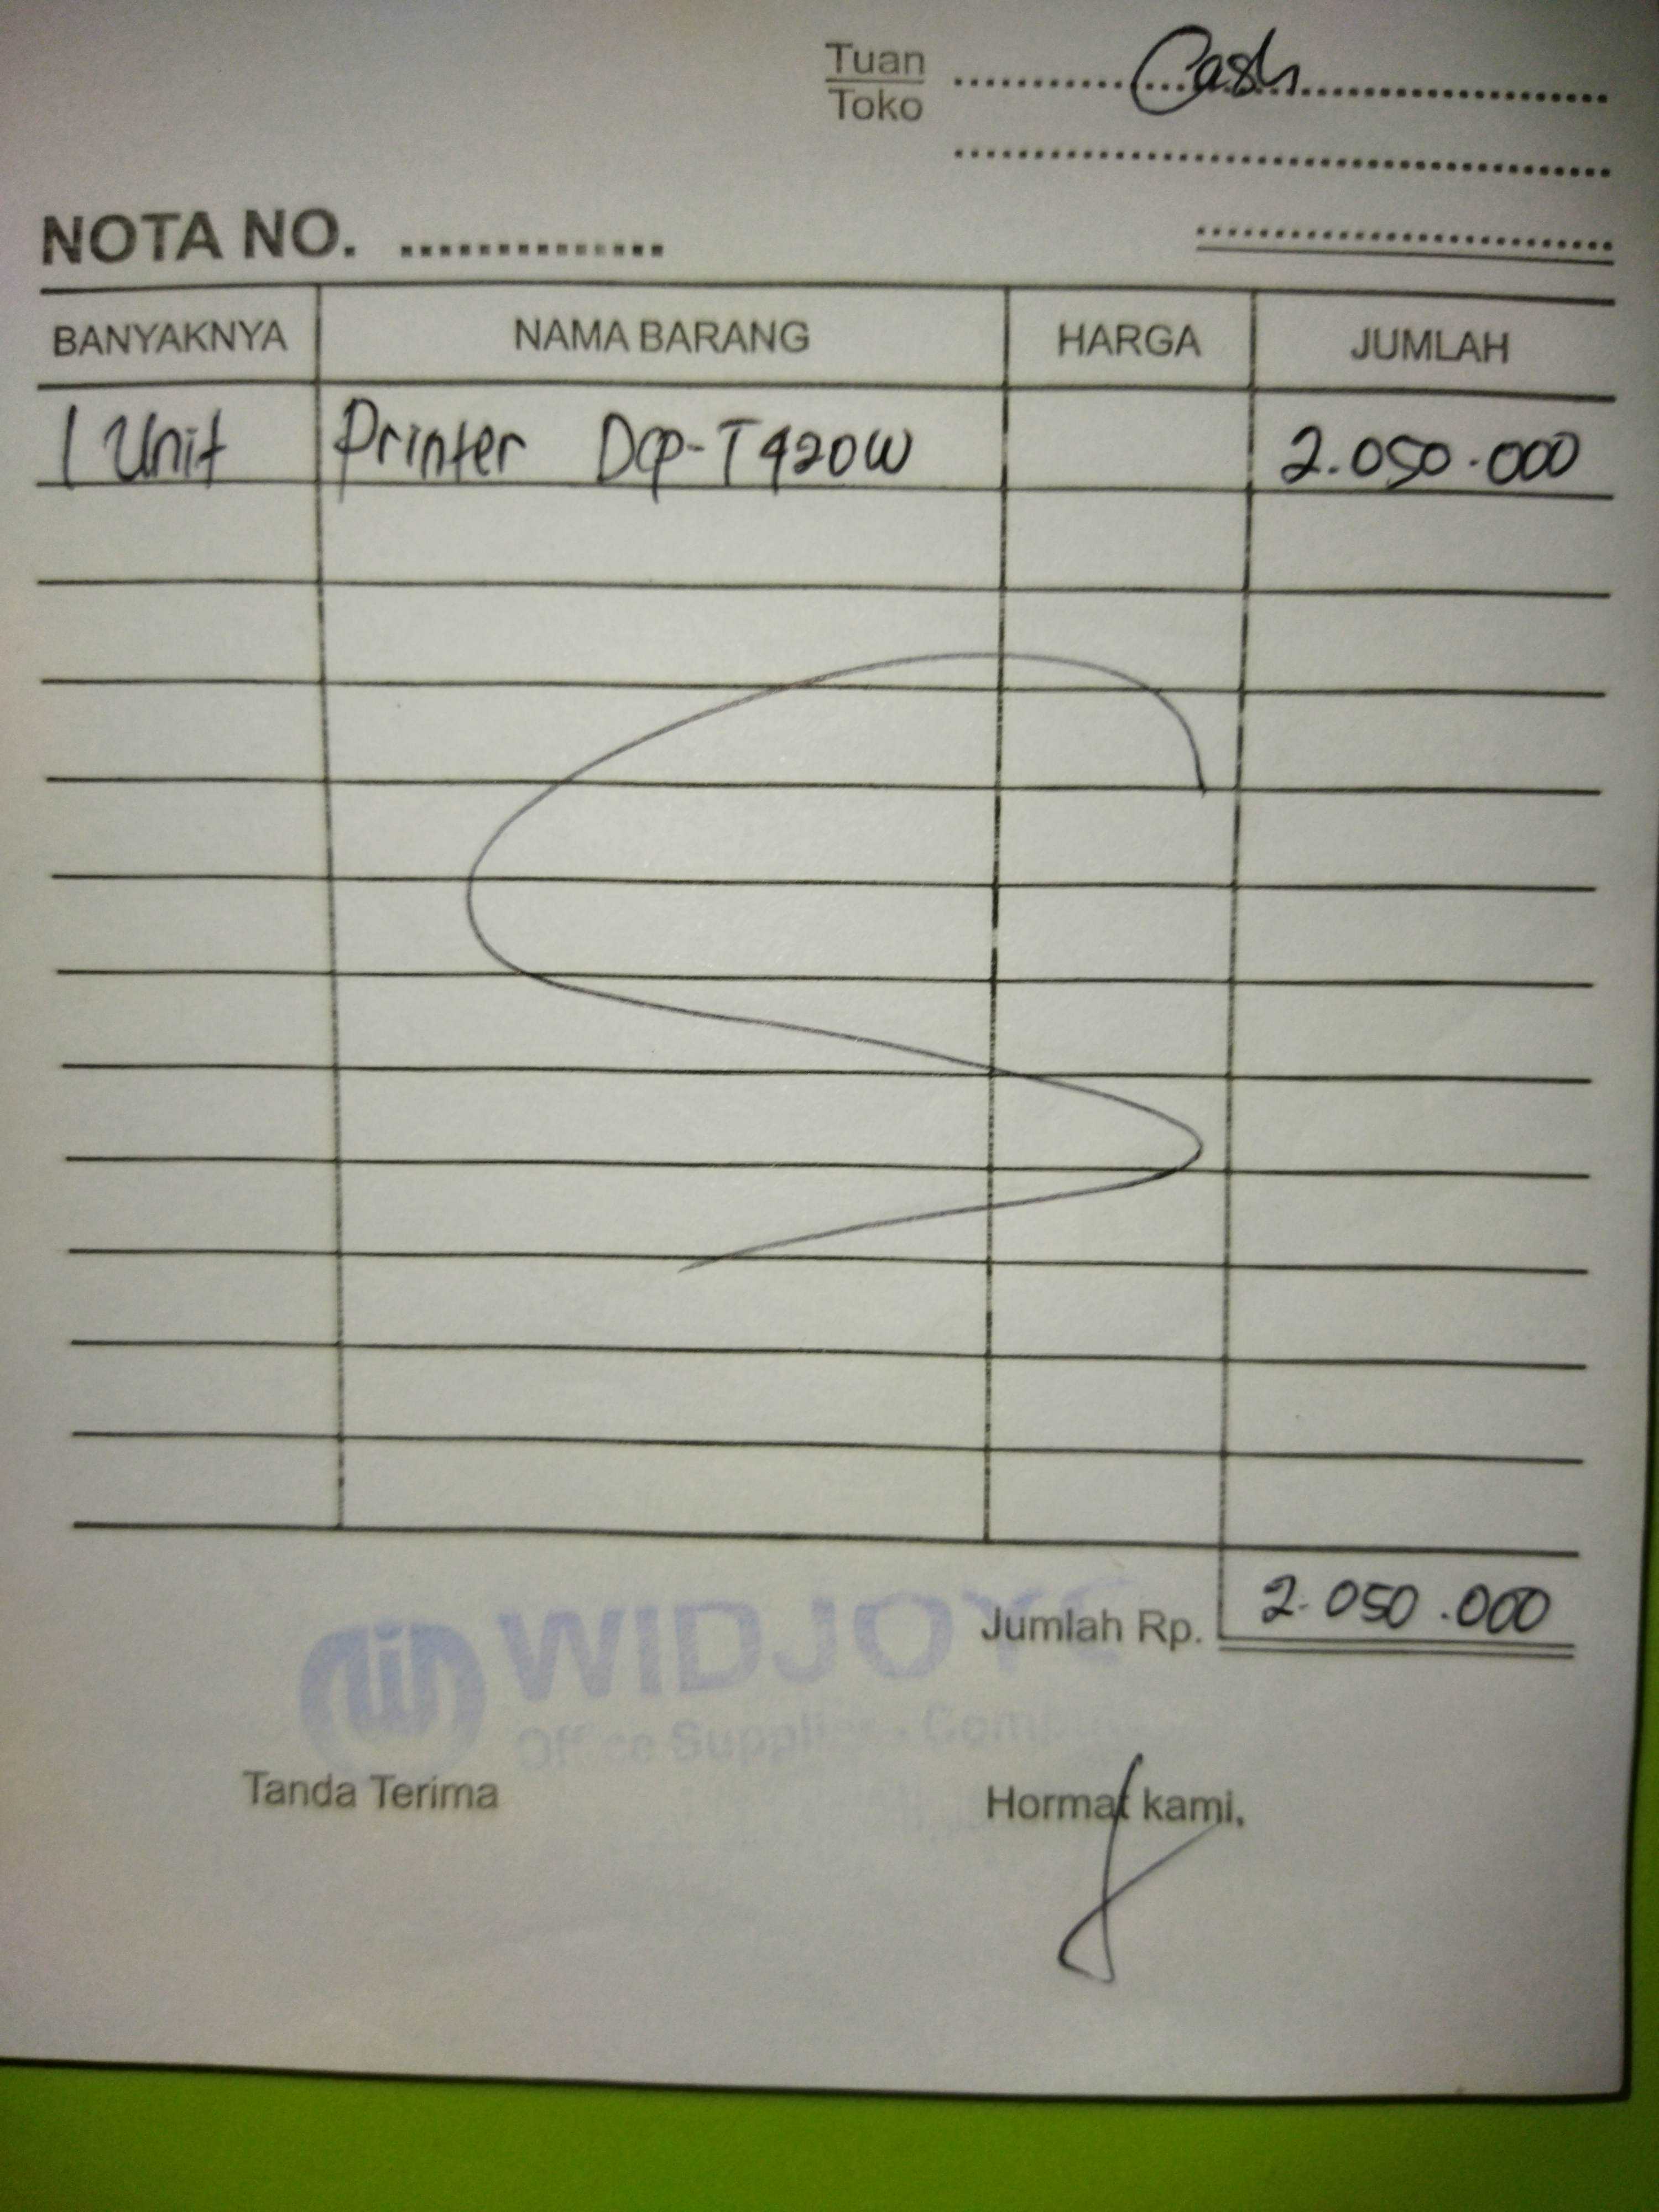 Tuan Cash
Toko
NOTA NO.
BANYAKNYA NAMA BARANG HARGA JUMLAH
1 Unit Printer Dcp-T420W 2.050.000
Jumlah Rp. 2.050.000
WIDJOYO
Office Supplies -
Tanda Terima Hormat kami,